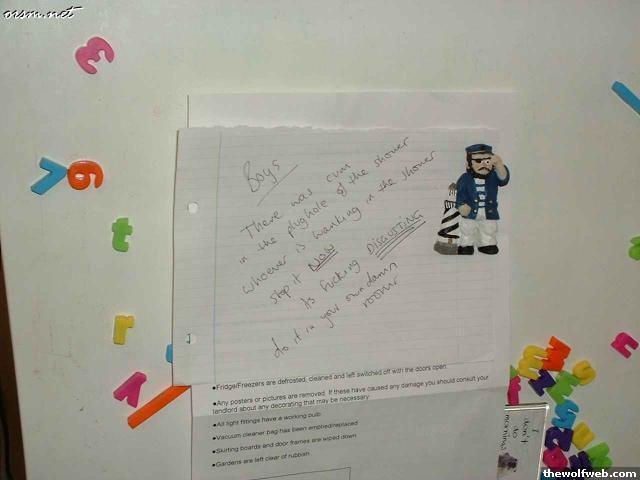 oism.net
Boys
There was cum
in the plughole of the shower
whoever is wanking in the shower
stop it NOW
its fucking DISGUSTING
do it in your own damn
rooms
●Fridge/Freezers are defrosted, cleaned and left switched off with the doors open.
●Any posters or pictures are removed. If these have caused any damage you should consult your
landlord about any decorating that may be necessary.
●All light fittings have a working bulb
●Vacuum cleaner bag has been emptied/replaced
●Skirting boards and door frames are wiped down
●Gardens are left clear of rubbish
I
don't
do
mornings
thewolfweb.com